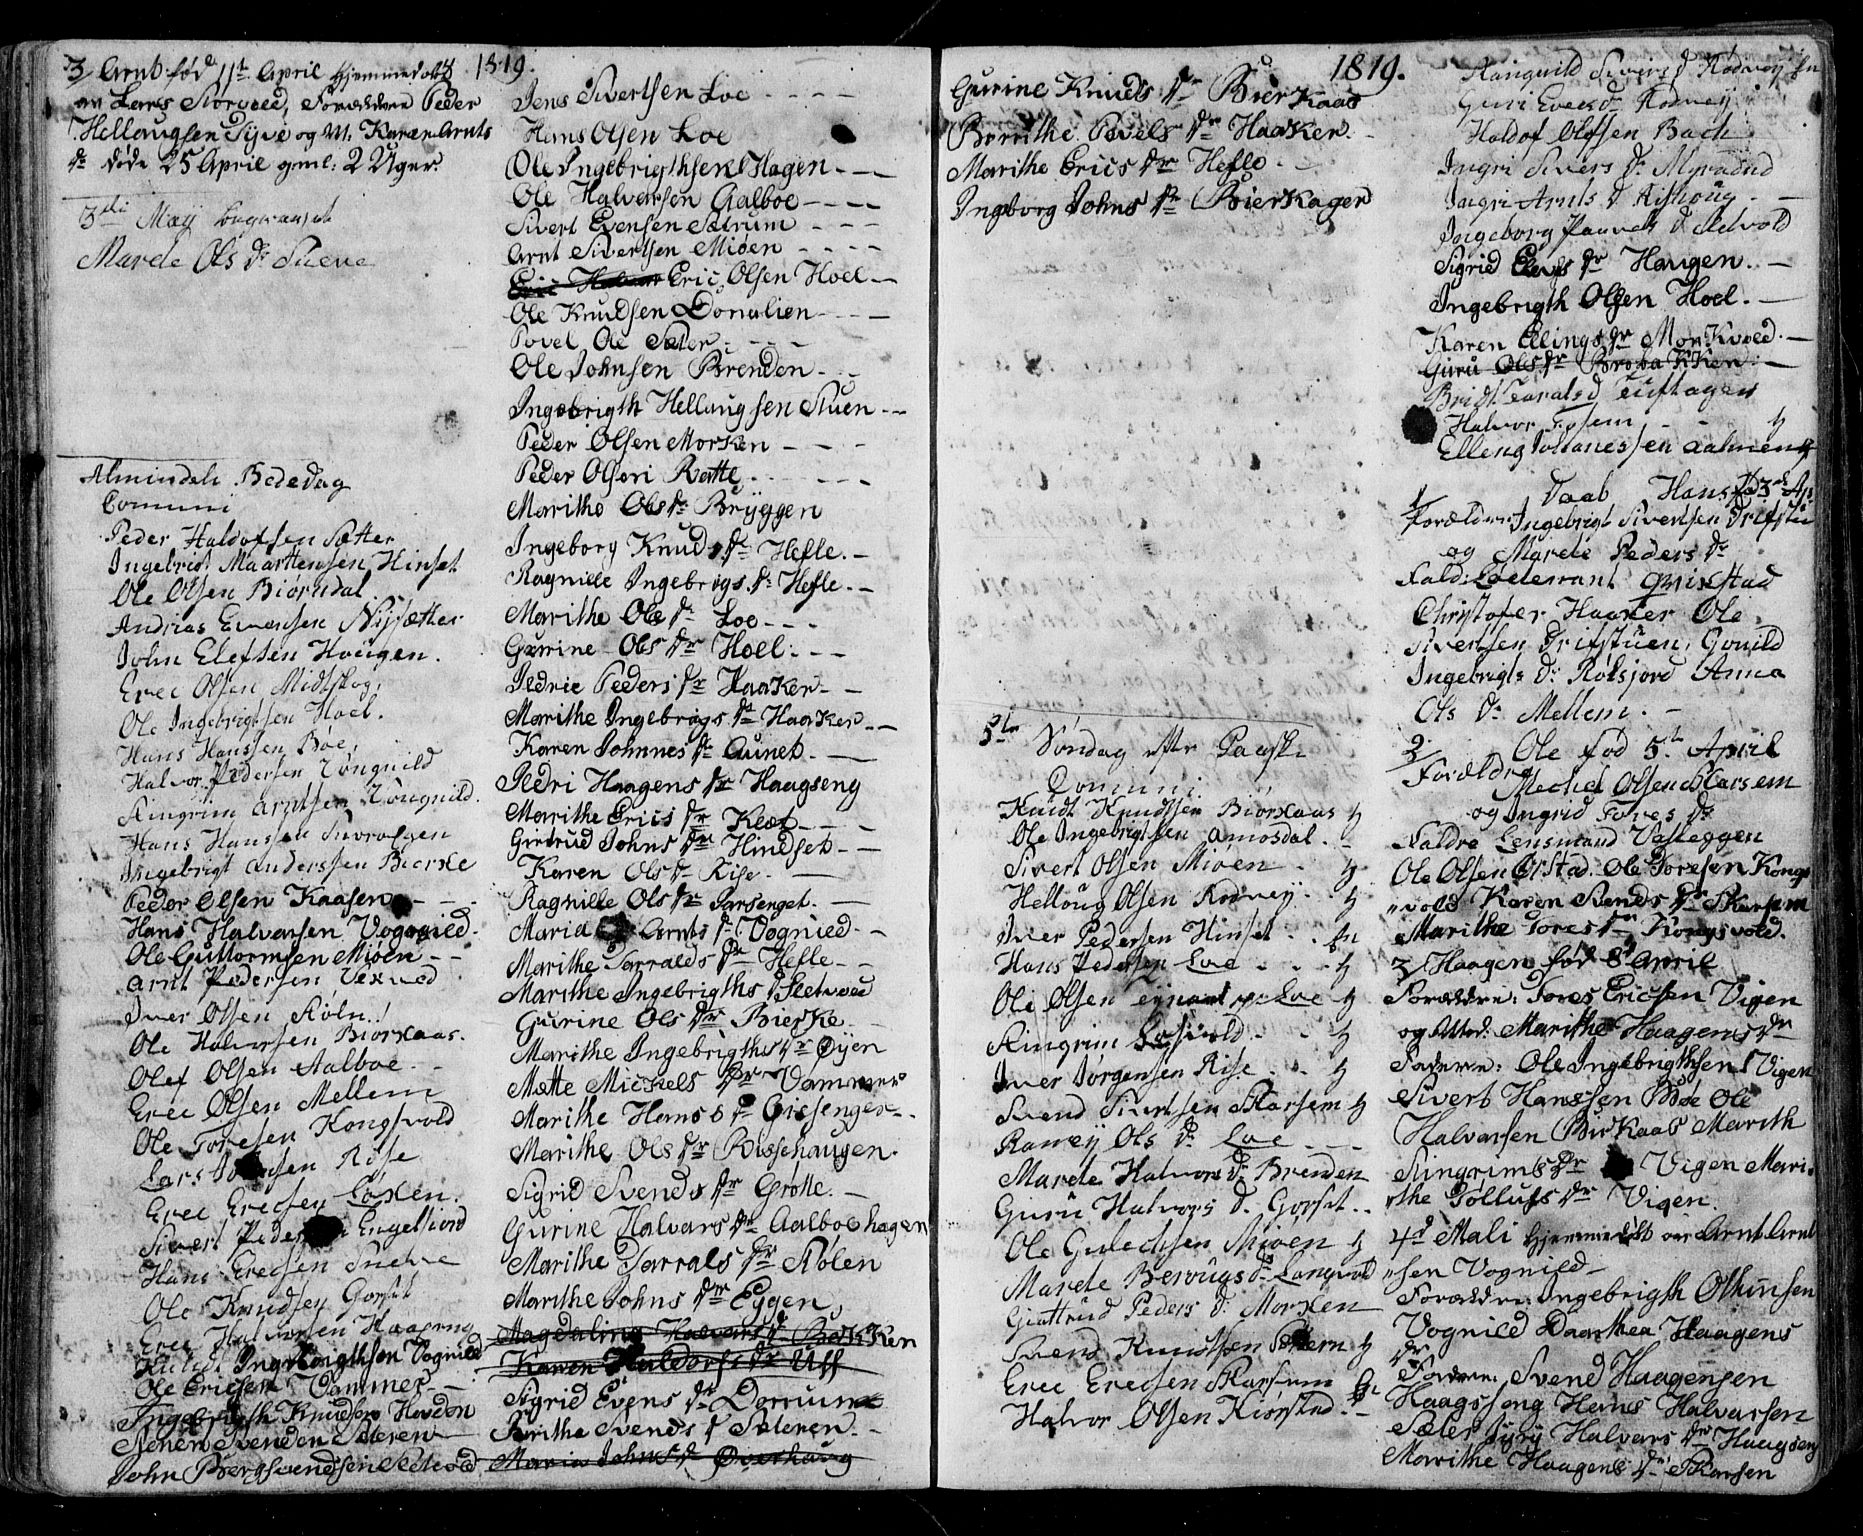 3/ Arnt fød 11te April hjemmedøbt
av Lars Storveed, Forældre Peder
Hellaugsen Syve og M. Karen Arnts
dr døde 25 April gml: 2 Uger.
3die Maÿ
Marete Ols Dr Stuene
Almindeli Bededag
Comuni
Peder Haldorsen Sætter
Ingebrigt Maartensen Hinset
Ole Olsen Biørndal
Andreas Evensen Nÿsætter
John Elefsen Hougen.
Erec Olsen Midtskog,
Ole Ingebrigtsen Hoel.
Hans Hanssen Bøe,
Halvor Pedersen Vongnild
Ringrim Arntsen Vongnild.
Hans Hanssen
Ingebrigt Anderssen Bierke
Peder Olsen Kaasen
Hans Halvarsen Vognied.
Ole Guttormsen Miøen
Arnt Pedersen Vexved
Iver Olsen Røln.
Ole Halvorsen Biørkaas.
Olef Olsen Aalboe
Erec Olsen Mellem
Ole Toresen Kongsvold
Lars Røse
Erec Erecsen Loxen.
Sivert Peder Engelsiord
Hans Erecsen Stuene
Ole Knudsen Gorset
Erec Halvorsen Haageng
Knudt Ingebrigthsen Vognied
Ole Ericsen Vammer
Ingebrigth Knudsen Hovden
Svenden Sæteren
John Bergsvendsen Sletvold
1819.
Jens Sivertsen Loe
Hans Olsen Loe
Ole Ingebrigthsen Hagen
Ole Halvarsen Aalboe
Sivert Evensen Sætrum
Arnt Sivertsen Miøen
Eric Olsen Hoel
Ole Knudsen Donalien
Povel Ole Sæter
Ole Johnsen Brenden
Ingebrigth Hellaugsen Stuen
Peder Olsen Morken
Peder Olsen Rette
Marithe Ols dr Brÿggen
Ingeborg Knuds dr Hefle.
Ragnille Ingebrigs dr Hefle.
Marithe Ols dr Loe
Gurine Ols dr Hoel.
Sedrie Peders dr Haaker
Marithe Ingebrigs dr Haaker
Karen Johnnes dr Aunet.
Sedri Haagens dr Haagseng
Marithe Erics dr Klet
Girtrud Johns dr Hindset
Karen Ols dr Rise.
Ragnille Ols dr
Marid Arnts dr Vognied.
Marithe Tarralds dr Hefle
Marithe Ingebrigths d Sletvold
Gurine Ols dr Bierke.
Marithe Ingebrigths dr Øÿen
Mette Mickels dr Vammer
Marithe Hans dr Gissenger
Marithe Ols dr Bissehaugen.
Sigrid Svends dr Grøtte.
Gurine Halvars dr Aalboehagen
Marithe Tarrals dr Rølen
Marithe Johns dr Eggen
Magdalina Halvars dr Bakken
Karen Haldors dr Uff
Sigrid Evens dr Dørrum
Birithe Svends d Sæteren.
Maria Johns dr Øverhaug
1819.
Gurine Knuds dr Bierkaas
Berrithe Povels dr Haaker
Marithe Erics dr Hefle
Ingeborg Johns dr Bierkager
3die Søndag efter Paaske
Comuni
Knudt Knudssen Biørkaas
Ole Ingebrigtsen Amosdal.
Sivert Olsen Miøen
Helloug Olsen Rodvej.
Iver Pedersen Hinset
Hans Pedersen Loe
Ole Olsen Loe
Ringrim
Iver Jørgensen Rise
Svend Sivertsen Skarsem
Ranneÿ Ols dr Loe
Marete Halvors dr Brenden
Guru Halvors d. Gorset
Ole Gulechsen Miøen
Marete Berougs dr Langvold
Giertrud Peders dr Morken
Svend Knudtsen
Erec Erecsen Skarsem
Halvor Olsen Kierstad.
Ranguild Sivers d Rodvej
Guri Evers dr Rodvej
Haldof Olefsen Bach
Ingri Sivers dr
Ingri Arnts d Rishoug
Ingeborg Pauvels d
Sigrid Elefs dr Haugen.
Ingebrigth Olsen Hoel.
Karen Ellings dr Morkved.
Guru Ols dr Brobakken
Bridt Taralsd Tuftagen
Halvor
Elleng Johannessen Aalmen
Daab
1/ Hans fød 3de Ap
Forældre Ingebrigt Sivertsen Drifstu
og Marete Peders dr
Fald: Loeiterant Qvixstad
Christofer Haaker Ole
Sivertsen Drifstuen, Gonild
Ingebrigts dr Rølsjord Anna
Ols dr Mellem.
2/ Ole fød 5te April
Forældre Mechel Olsen Skarsem
og Ingrid Tores dr
Faldre Lensmand Vasleggen
Ole Olsen Ørstad. Ole Toresen Kongs
vold Karen Svends dr Skarsem
Marithe Tores dr Kongsvold.
3/ Haagen fød 8d April
Forældre: Tores Ericsen Vigen
og Mod: Marithe Haagens dr
Fadderne: Ole Ingebrigthsen Vigen
Sivert Hanssen Bøe Ole
Halvarsen Birkaas Marith
Ringrims dr Vigen Mari-
the Tollufs dr Vigen.
4d Mali hjemmedøbt av Arnt Arnt
sen Vognied
Forældre Ingebrigth Olhinsen
Vognied Daarthea Haagens
dr
Fadderne: Svend Haagensen
Haagsseng Hans Halvarsen
Sæter Halvars dr Haagseng
Marithe Haagens dr Skarsen